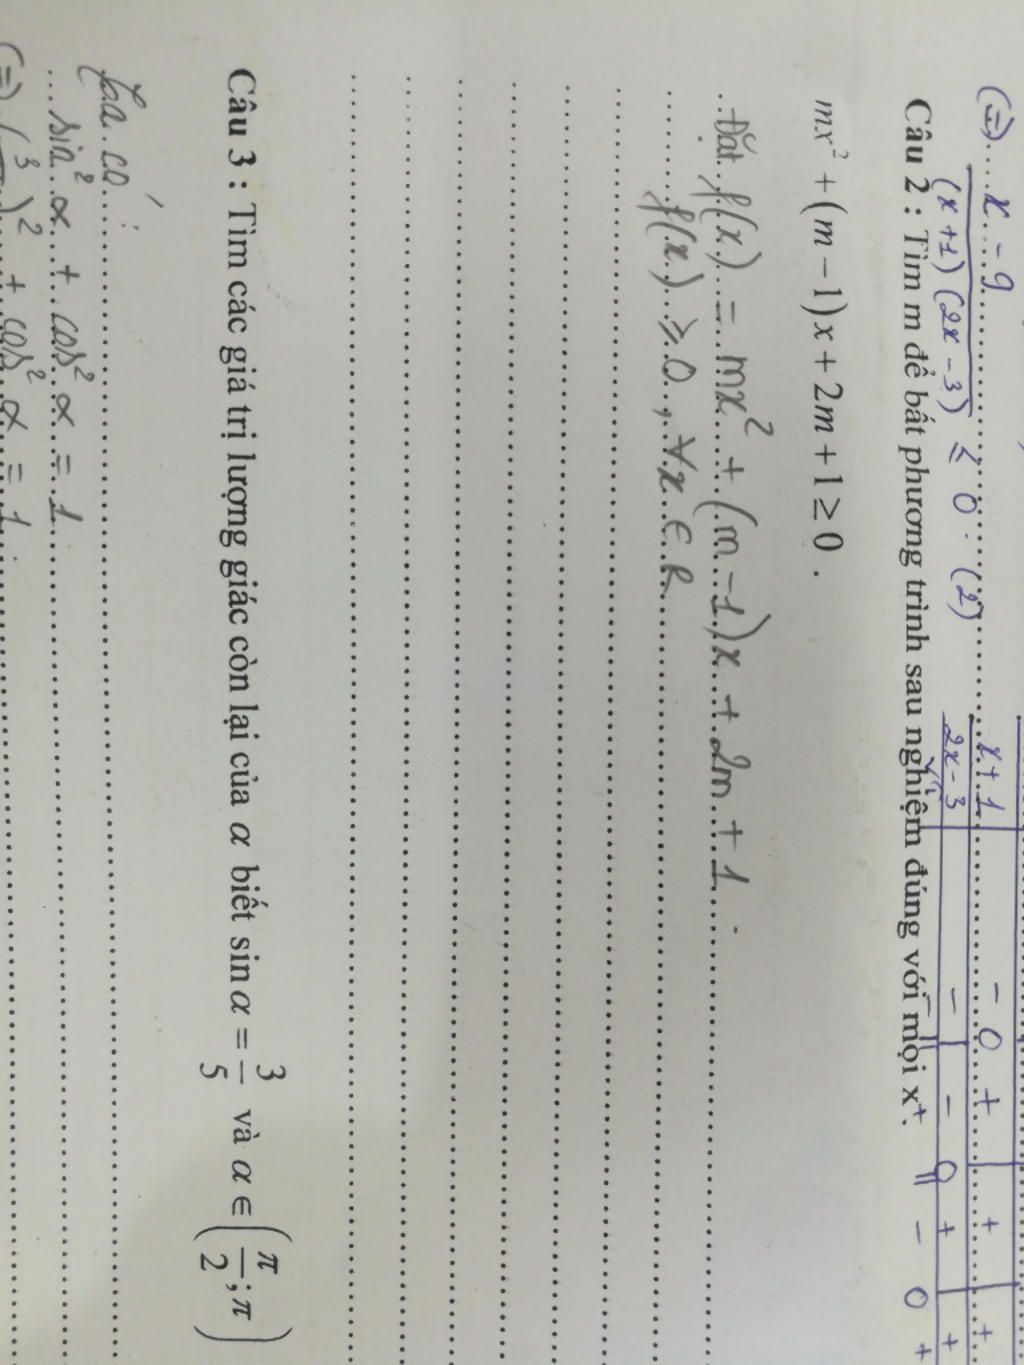 (=) x - 9 / (x+1)(2x-3) ≤ 0 (2)
x+1 - 0 + + +
2x-3 - - 0 + +
|| + || - 0 +
Câu 2 : Tìm m để bất phương trình sau nghiệm đúng với mọi x.
mx² + (m − 1)x + 2m + 1 ≥ 0 .
Đặt f(x) = mx² + (m - 1)x + 2m + 1.
f(x) ≥ 0, ∀x ∈ R
Câu 3 : Tìm các giá trị lượng giác còn lại của α biết sin α = 3/5 và α ∈ (π/2; π)
Ta có:
sin² α + cos² α = 1
(=) (3 )² + cos² α = 1